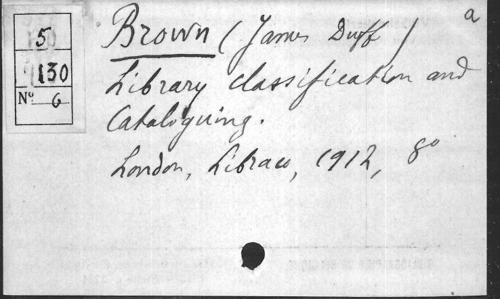 5
130
Nº 6
Brown (James Duff) a
Library classification and
Cataloguing.
London, Libraco, 1912, 8º